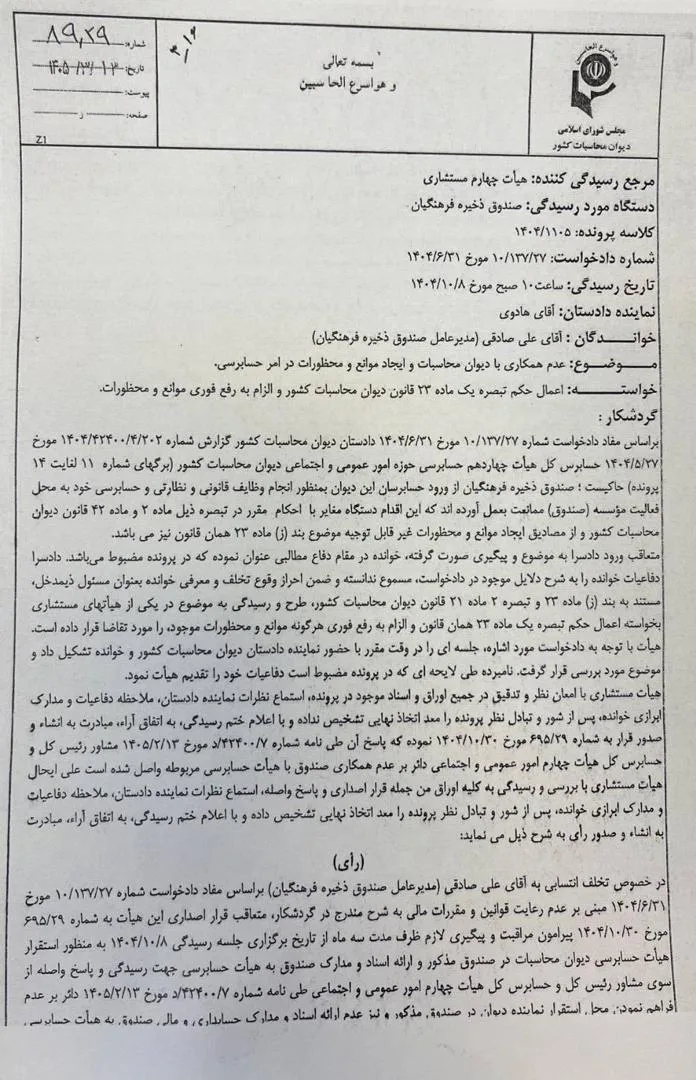 شماره: ۸۹,۲۹
تاریخ: ۱۴۰۵/۳/۱۳
پیوست:
صفحه: ز
Z1
بسمه تعالی
و هو اسرع الحاسبین
مجلس شورای اسلامی
دیوان محاسبات کشور
مرجع رسیدگی کننده: هیأت چهارم مستشاری
دستگاه مورد رسیدگی: صندوق ذخیره فرهنگیان
کلاسه پرونده: ۱۴۰۴/۱۱۰۵
شماره دادخواست: ۱۰/۱۳۷/۲۷ مورخ ۱۴۰۴/۶/۳۱
تاریخ رسیدگی: ساعت۱۰ صبح مورخ ۱۴۰۴/۱۰/۸
نماینده دادستان: آقای هادوی
خوانــــدگان : آقای علی صادقی (مدیرعامل صندوق ذخیره فرهنگیان)
مــوضــوع: عدم همکاری با دیوان محاسبات و ایجاد موانع و محظورات در امر حسابرسی.
خواستــه: اعمال حکم تبصره یک ماده ۲۳ قانون دیوان محاسبات کشور و الزام به رفع فوری موانع و محظورات.
گردشکار :
براساس مفاد دادخواست شماره ۱۰/۱۳۷/۲۷ مورخ ۱۴۰۴/۶/۳۱ دادستان دیوان محاسبات کشور گزارش شماره ۱۴۰۴/۴۲۴۰۰/۴/۲۰۲ مورخ
۱۴۰۴/۵/۲۷ حسابرس کل هیأت چهاردهم حسابرسی حوزه امور عمومی و اجتماعی دیوان محاسبات کشور (برگهای شماره ۱۱ لغایت ۱۴
پرونده) حاکیست ؛ صندوق ذخیره فرهنگیان از ورود حسابرسان این دیوان بمنظور انجام وظایف قانونی و نظارتی و حسابرسی خود به محل
فعالیت مؤسسه (صندوق) ممانعت بعمل آورده اند که این اقدام دستگاه مغایر با احکام مقرر در تبصره ذیل ماده ۲ و ماده ۴۲ قانون دیوان
محاسبات کشور و از مصادیق ایجاد موانع و محظورات غیر قابل توجیه موضوع بند (ز) ماده ۲۳ همان قانون نیز می باشد.
متعاقب ورود دادسرا به موضوع و پیگیری صورت گرفته، خوانده در مقام دفاع مطالبی عنوان نموده که در پرونده مضبوط می‌باشد. دادسرا
دفاعیات خوانده را به شرح دلایل موجود در دادخواست، مسموع ندانسته و ضمن احراز وقوع تخلف و معرفی خوانده بعنوان مسئول ذیمدخل،
مستند به بند (ز) ماده ۲۳ و تبصره ۲ ماده ۲۱ قانون دیوان محاسبات کشور، طرح و رسیدگی به موضوع در یکی از هیأتهای مستشاری
بخواسته اعمال حکم تبصره یک ماده ۲۳ همان قانون و الزام به رفع فوری هرگونه موانع و محظورات موجود، را مورد تقاضا قرار داده است.
هیأت با توجه به دادخواست مورد اشاره، جلسه ای را در وقت مقرر با حضور نماینده دادستان دیوان محاسبات کشور و خوانده تشکیل داد و
موضوع مورد بررسی قرار گرفت. نامبرده طی لایحه ای که در پرونده مضبوط است دفاعیات خود را تقدیم هیأت نمود.
هیأت مستشاری با امعان نظر و تدقیق در جمیع اوراق و اسناد موجود در پرونده، استماع نظرات نماینده دادستان، ملاحظه دفاعیات و مدارک
ابرازی خوانده، پس از شور و تبادل نظر پرونده را معد اتخاذ نهایی تشخیص نداده و با اعلام ختم رسیدگی، به اتفاق آراء، مبادرت به انشاء و
صدور قرار به شماره ۶۹۵/۲۹ مورخ ۱۴۰۴/۱۰/۳۰ نموده که پاسخ آن طی نامه شماره ۴۲۴۰۰/۷/د مورخ ۱۴۰۵/۲/۱۳ مشاور رئیس کل و
حسابرس کل هیأت چهارم امور عمومی و اجتماعی دائر بر عدم همکاری صندوق با هیأت حسابرسی مربوطه واصل شده است علی ایحال
هیأت مستشاری با بررسی و رسیدگی به کلیه اوراق من جمله قرار اصداری و پاسخ واصله، استماع نظرات نماینده دادستان، ملاحظه دفاعیات
و مدارک ابرازی خوانده، پس از شور و تبادل نظر پرونده را معد اتخاذ نهایی تشخیص داده و با اعلام ختم رسیدگی، به اتفاق آراء، مبادرت
به انشاء و صدور رأی به شرح ذیل می نماید:
(رأی)
در خصوص تخلف انتسابی به آقای علی صادقی (مدیرعامل صندوق ذخیره فرهنگیان) براساس مفاد دادخواست شماره ۱۰/۱۳۷/۲۷ مورخ
۱۴۰۴/۶/۳۱ مبنی بر عدم رعایت قوانین و مقررات مالی به شرح مندرج در گردشکار، متعاقب قرار اصداری این هیأت به شماره ۶۹۵/۲۹
مورخ ۱۴۰۴/۱۰/۳۰ پیرامون مراقبت و پیگیری لازم ظرف مدت سه ماه از تاریخ برگزاری جلسه رسیدگی ۱۴۰۴/۱۰/۸ به منظور استقرار
هیأت حسابرسی دیوان محاسبات در صندوق مذکور و ارائه اسناد و مدارک صندوق به هیأت حسابرسی جهت رسیدگی و پاسخ واصله از
سوی مشاور رئیس کل و حسابرس کل هیأت چهارم امور عمومی و اجتماعی طی نامه شماره ۴۲۴۰۰/۷/د مورخ ۱۴۰۵/۲/۱۳ دائر بر عدم
فراهم نمودن محل استقرار نماینده دیوان در صندوق مذکور و نیز عدم ارائه اسناد و مدارک حسابداری و مالی صندوق به هیأت حسابرسی